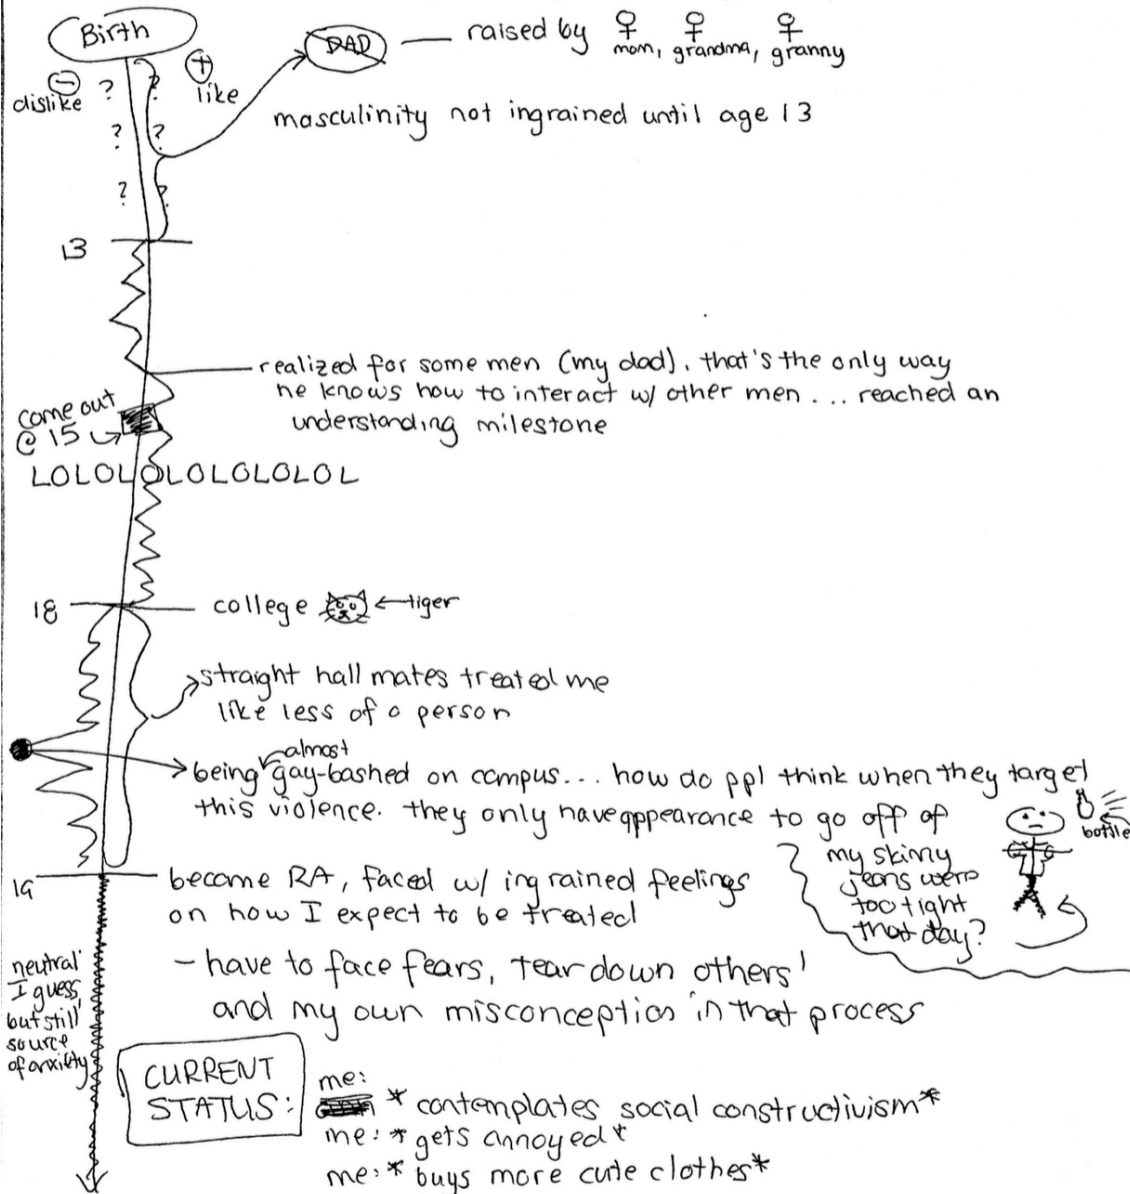 Birth
DAD — raised by ♀ ♀ ♀
mom, grandma, granny
⊖ ? ? ⊕
dislike like
masculinity not ingrained until age 13
? ?
? ?
13
realized for some men (my dad), that's the only way
he knows how to interact w/ other men . . . reached an
understanding milestone
come out
@ 15
LOLOLOLOLOLOLOL
18 college ← tiger
straight hall mates treated me
like less of a person
almost
being gay-bashed on campus... how do ppl think when they target
this violence. they only have appearance to go off of
bottle
my skinny
jeans were
too tight
that day?
19 become RA, faced w/ ingrained feelings
on how I expect to be treated
- have to face fears, tear down others'
and my own misconception in that process
neutral
I guess,
but still
source
of anxiety
CURRENT
STATUS:
me:
* contemplates social constructivism*
me: *gets annoyed*
me: * buys more cute clothes*